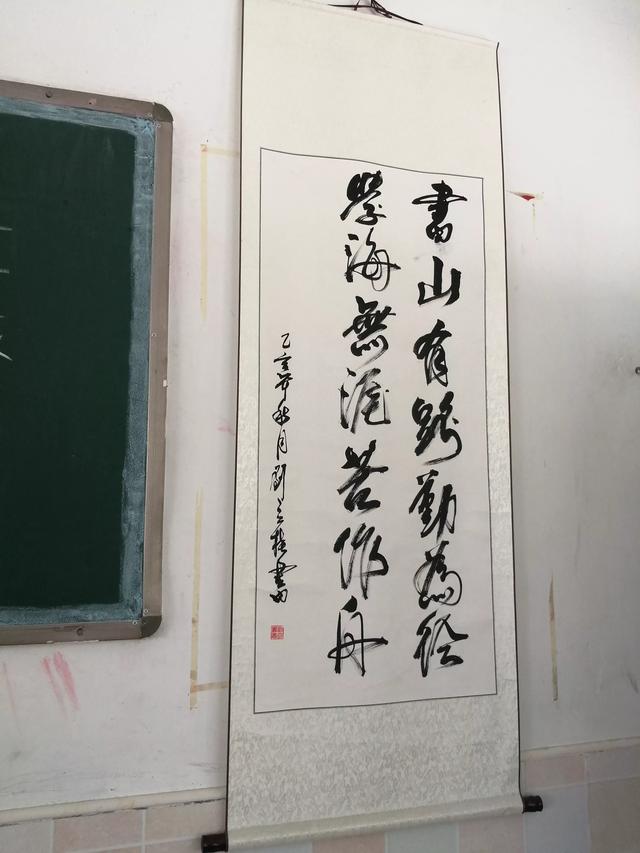 書山有路勤為徑
學海無涯苦作舟
乙亥年秋月劉書